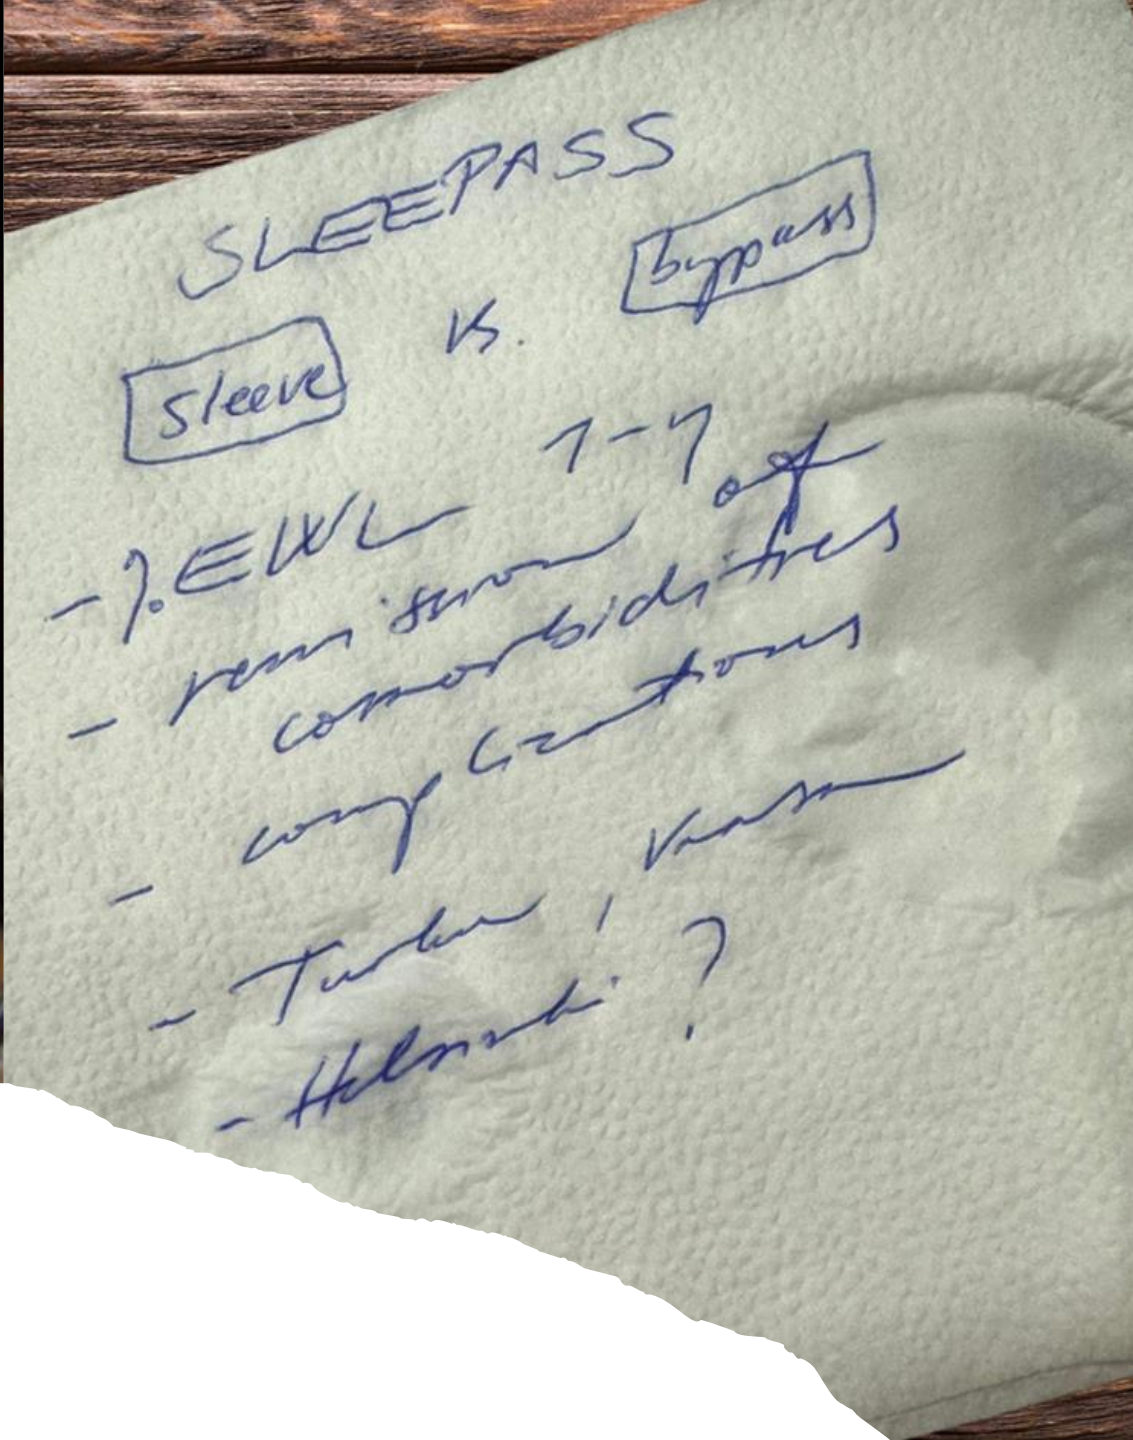 SLEEPASS
sleeve vs. bypass
- %EWL 1-1
- remission of
comorbidities
- complications
- Turku, Vaasa
- Helsinki ?